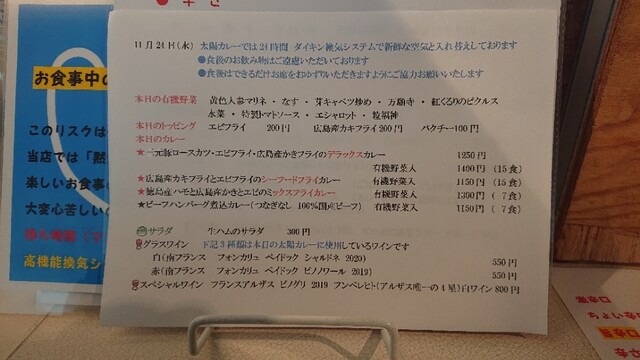 11月24日(水) 太陽カレーでは24時間 ダイキン換気システムで新鮮な空気と入れ替えしております
●食後のお飲み物はご遠慮いただいております
●食後はできるだけお席をおゆずりいただきますようにご協力お願いいたします
本日の有機野菜 黄色人参マリネ・なす・芽キャベツ炒め・万願寺・紅くるりのピクルス
水菜・特製トマトソース・エシャロット・粒福神
本日のトッピング エビフライ 200円 広島産カキフライ200円 パクチー100円
本日のカレー
★三元豚ロースカツ・エビフライ・広島産かきフライのデラックスカレー 1250円
有機野菜入 1400円 (15食)
★広島産カキフライとエビフライのシーフードフライカレー 有機野菜入 1150円 (15食)
★徳島産ハモと広島産かきとエビのミックスフライカレー 有機野菜入 1300円 (7食)
★ビーフハンバーグ煮込カレー(つなぎなし 100%国産ビーフ) 有機野菜入 1150円 (7食)
サラダ 生ハムのサラダ 300円
グラスワイン 下記3種類は本日の太陽カレーに使用しているワインです
白(南フランス フォンカリュ ペイドック シャルドネ 2020) 550円
赤(南フランス フォンカリュ ペイドック ピノノワール 2019) 550円
スペシャルワイン フランスアルザス ピノグリ 2019 フンベレヒト(アルザス唯一の4星)白ワイン 800円
お食事中の
このリスクは
当店では「黙
楽しいお食事
大変心苦しい
高機能換気シ
激辛口
ちょい辛口
辛口